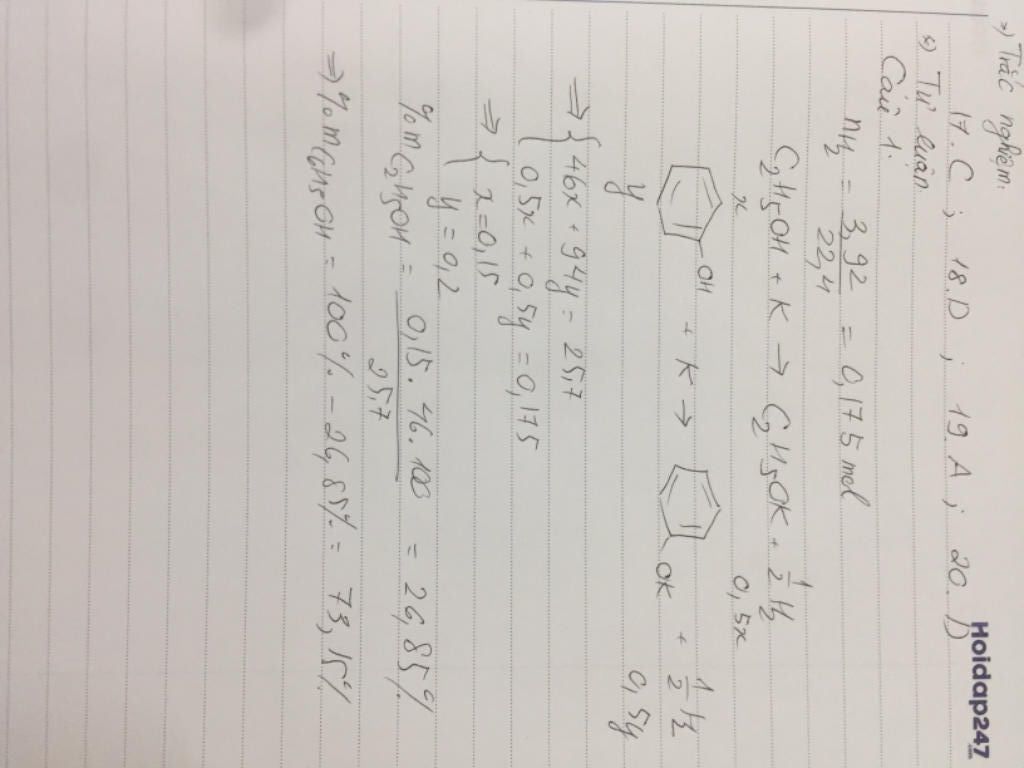 *) Trắc nghiệm:
17. C ; 18. D ; 19. A ; 20. D
*) Tự luận
Câu 1.
nH2 = 3,92/22,4 = 0,175 mol
C2H5OH + K → C2H5OK + 1/2 H2
x 0,5x
OH + K → OK + 1/2 H2
y 0,5y
⇒ { 46x + 94y = 25,7
0,5x + 0,5y = 0,175
⇒ { x = 0,15
y = 0,2
%mC2H5OH = 0,15.46.100/25,7 = 26,85%
⇒ %mC6H5OH = 100% - 26,85% = 73,15%
Hoidap247